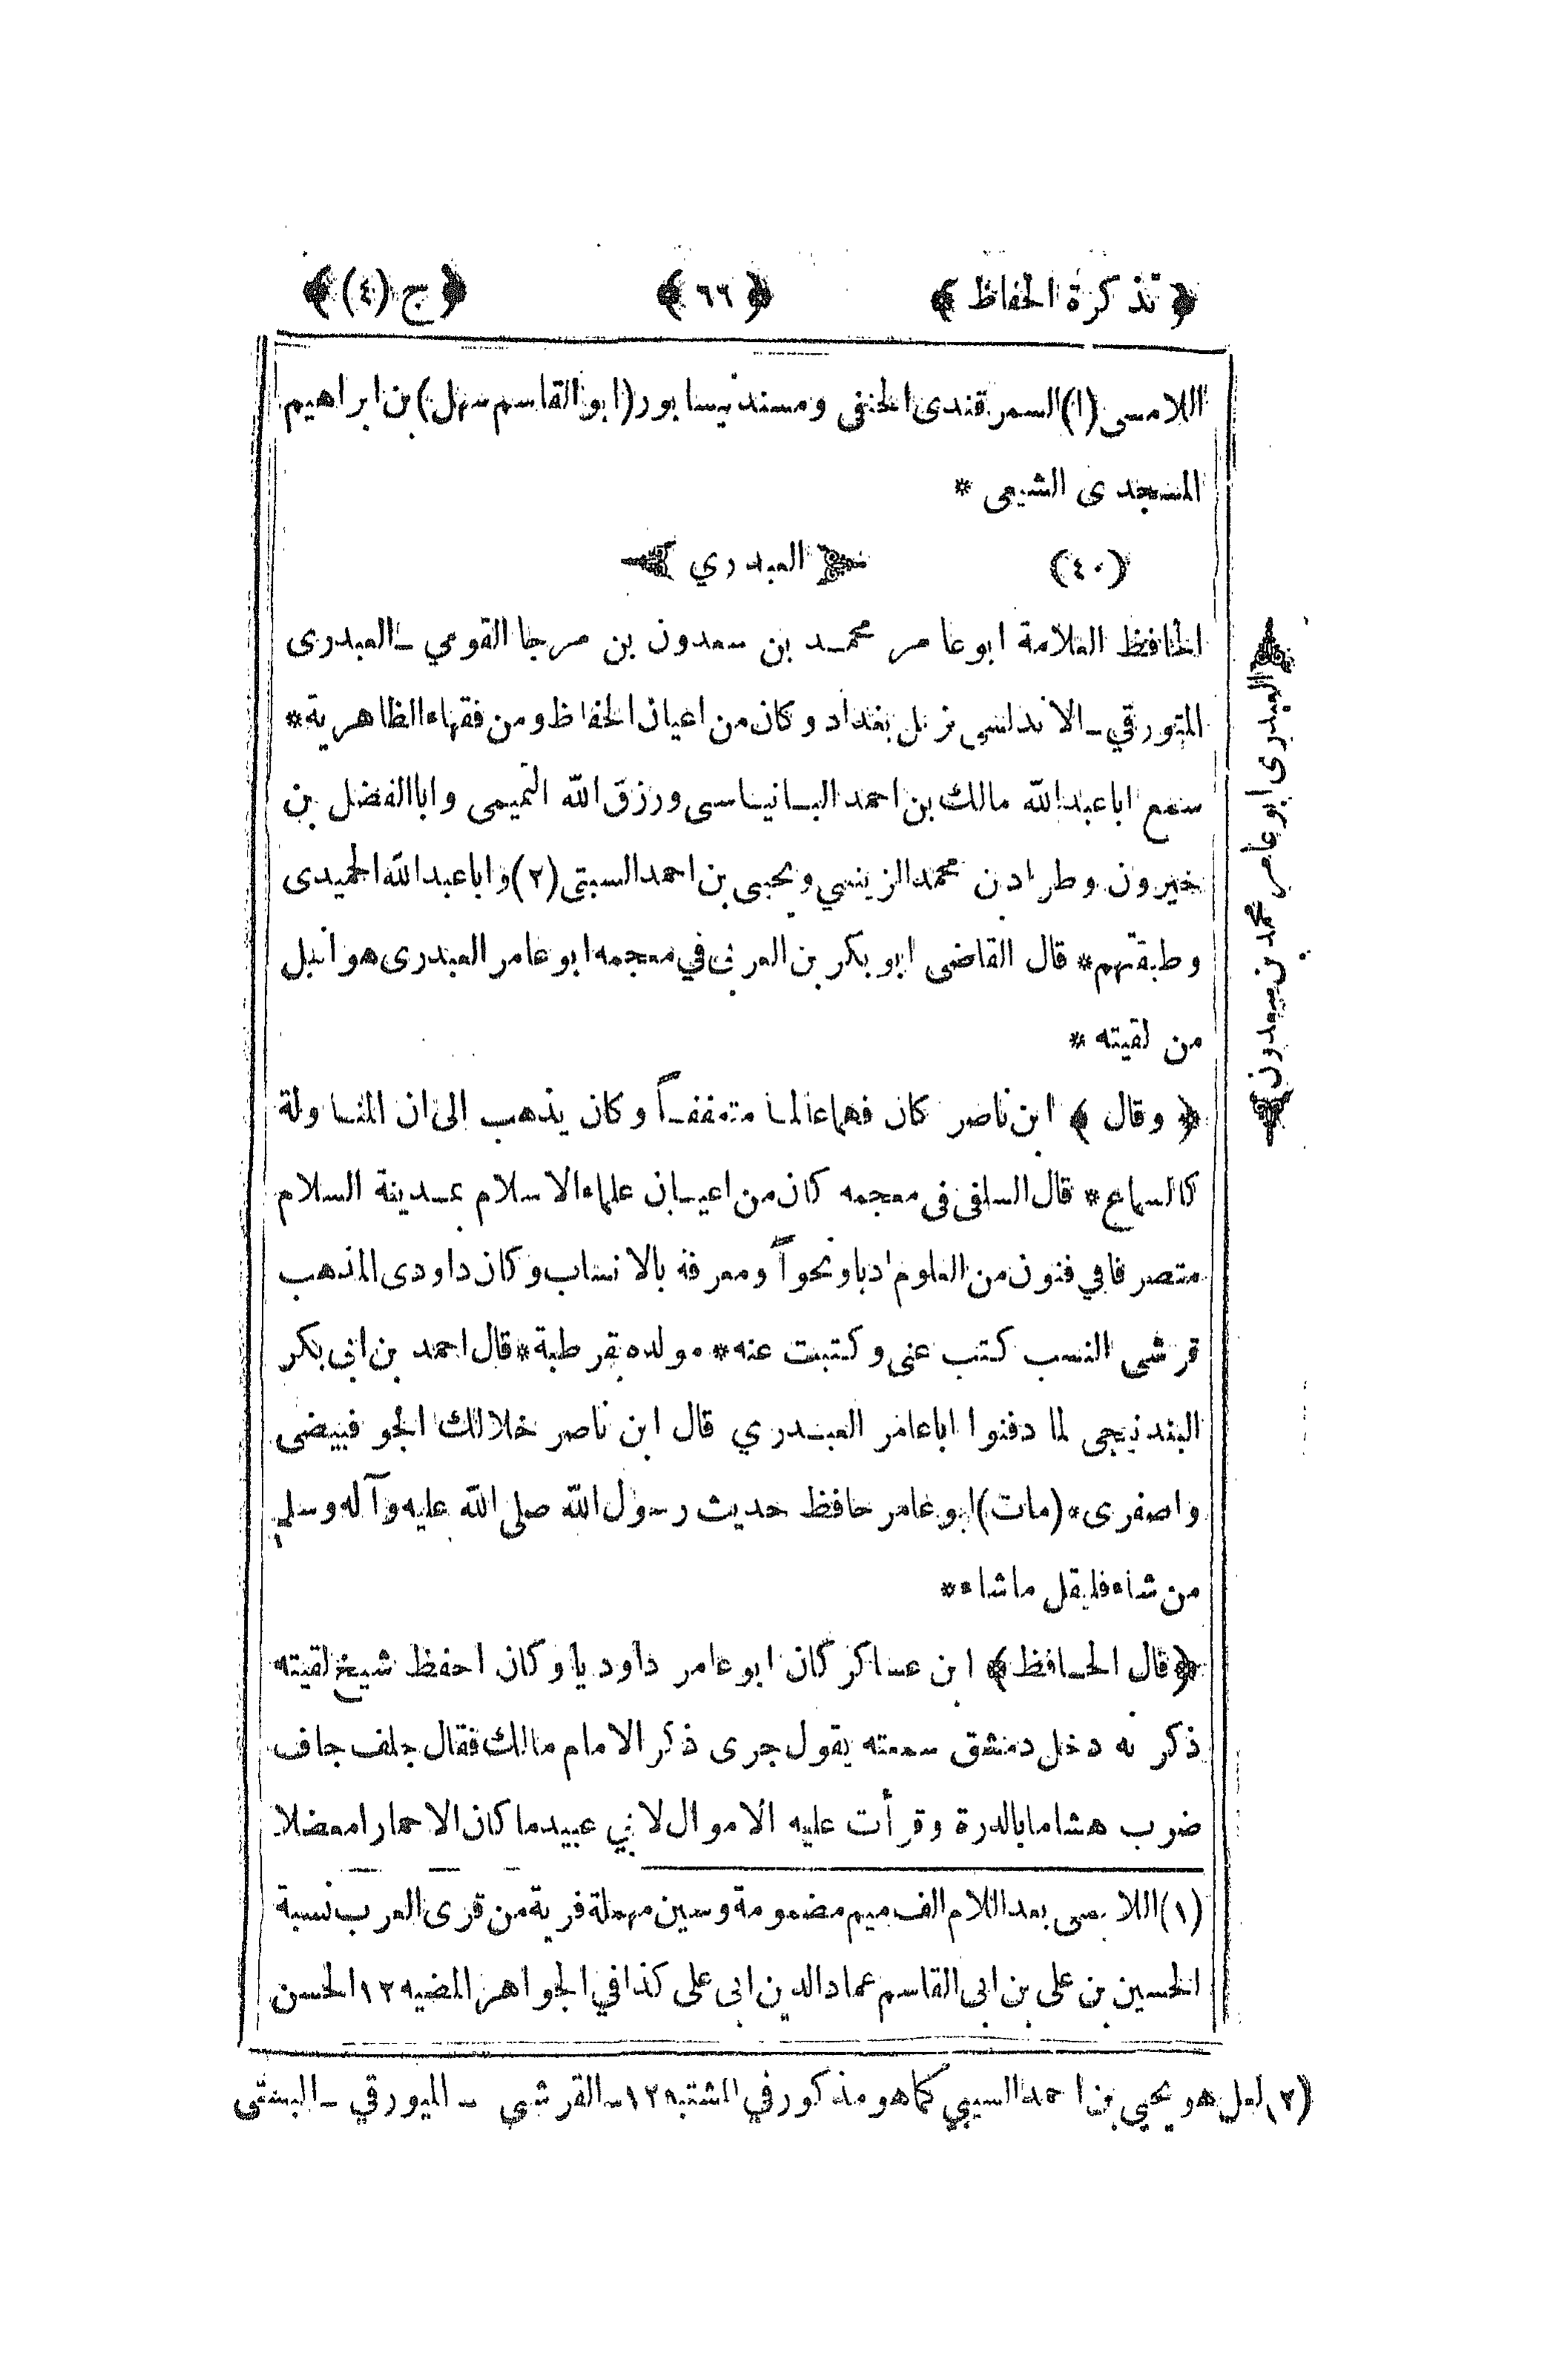 ﴿ تذكرة الحفاظ ﴾ ﴿ ٦٦ ﴾ ﴿ ج (٤) ﴾
اللامسى (١) السمرقندى الحنفى ومسند نيسابور (ابو القاسم سهل) بن ابراهيم
المسجدى الشيعى *
(٤٠) العبدري
الحافظ العلامة ابو عامر محمد بن سعدون بن مرجا القومي ـ العبدرى
المتورقي ـ الاندلسى نزيل بغداد وكان من اعيان الحفاظ ومن فقهاء الظاهرية *
سمع ابا عبد الله مالك بن احمد البانياسى ورزق الله التميمى وابا الفضل بن
خيرون وطراد بن محمد الزينبي ويحيى بن احمد السبتى (٢) وابا عبد الله الحميدى
وطبقتهم * قال القاضى ابو بكر بن العربى في معجمه ابو عامر العبدرى هو انبل
من لقيته *
﴿ وقال ﴾ ابن ناصر كان فهما عالما متعففاً وكان يذهب الى ان المناولة
كالسماع * قال السلفى فى معجمه كان من اعيان علماء الاسلام بمدينة السلام
متصرفا في فنون من العلوم ادبا ونحواً ومعرفة بالانساب وكان داودى المذهب
قرشى النسب كتب عنى وكتبت عنه * مولده بقرطبة * قال احمد بن ابى بكر
البندنيجى لما دفنوا ابا عامر العبدري قال ابن ناصر خلا لك الجو فبيضى
واصفرى * (مات) ابو عامر حافظ حديث رسول الله صلى الله عليه وآله وسلم
من شاء فليقل ما شاء *
﴿ قال الحافظ ﴾ ابن عساكر كان ابو عامر داوديا وكان احفظ شيخ لقيته
ذكر نه دخل دمشق سمعته يقول جرى ذكر الامام مالك فقال جلف جاف
ضرب هشاما بالدرة وقرأت عليه الاموال لابي عبيد ما كان الا حمارا مغفلا
(١) اللامسى بعد اللام الف ميم مضمومة وسين مهملة قرية من قرى العرب نسبة
الحسين بن على بن ابى القاسم عماد الدين ابى على كذا في الجواهر المضيه ١٢ الحسن
(٢) لعل هو يحيى بن احمد السيبي كما هو مذكور في المشتبه ١٢ ـ القرشي ـ الميورقي ـ البستى
العبدرى ابو عامر محمد بن سعدون